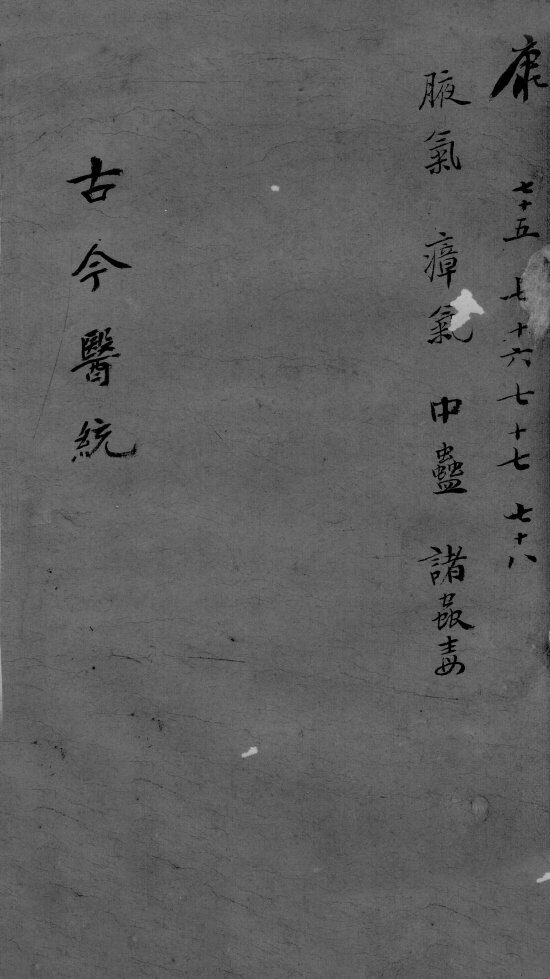 康 七十五 七十六 七十七 七十八
腋氣 瘴氣 中蠱 諸蟲毒
古今醫統